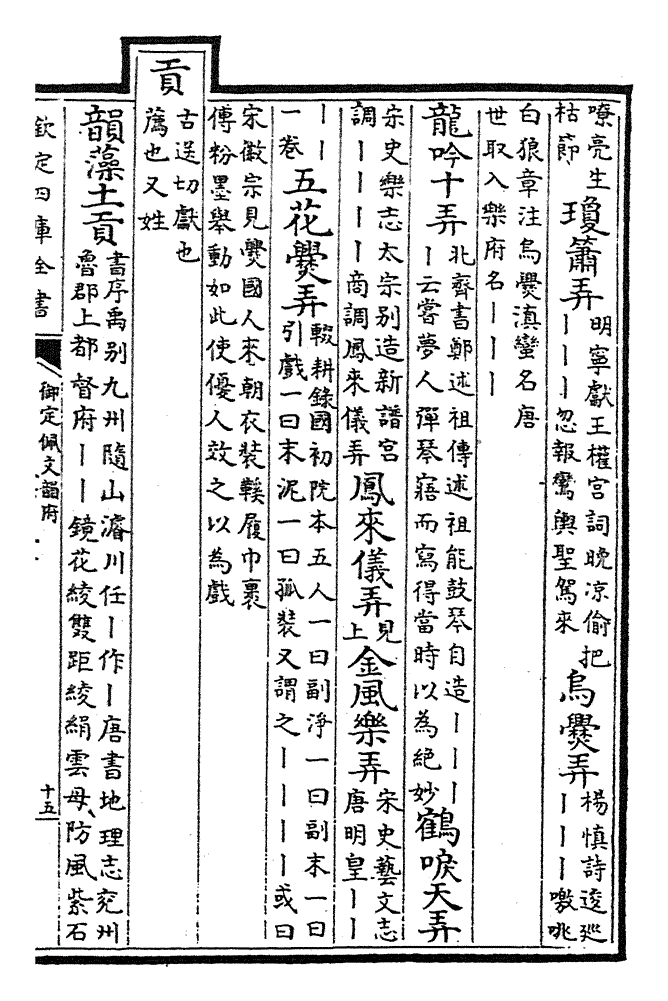 嘹亮生
枯節
瓊簫弄
明寧獻王權宫詞晚凉偷把
丨丨丨忽報鸞輿聖駕來
烏爨弄
楊慎詩逡巡
丨丨丨噭咷
白狼章注烏爨滇蠻名唐
世取入樂府名丨丨丨
龍吟十弄
北齊書鄭述祖傳述祖能鼓琴自造丨丨丨
丨云嘗夢人彈琴寤而寫得當時以為絶妙
鶴唳天弄
宋史樂志太宗别造新譜宫
調丨丨丨丨商調鳳來儀弄
鳳來儀弄
見
上
金風樂弄
宋史藝文志
唐明皇丨丨
丨丨
一卷
五花爨弄
輟耕録國初院本五人一曰副淨一曰副末一曰
引戲一曰末泥一曰孤裝又謂之丨丨丨丨或曰
宋徽宗見爨國人來朝衣裝鞵履巾裹
傅粉墨舉動如此使優人效之以為戲
貢
古送切獻也
薦也又姓
韻藻土貢
書序禹别九州隨山濬川任丨作丨唐書地理志兖州
魯郡上都督府丨丨鏡花綾雙距綾絹雲母防風紫石
欽定四庫全書
御定佩文韻府
十五